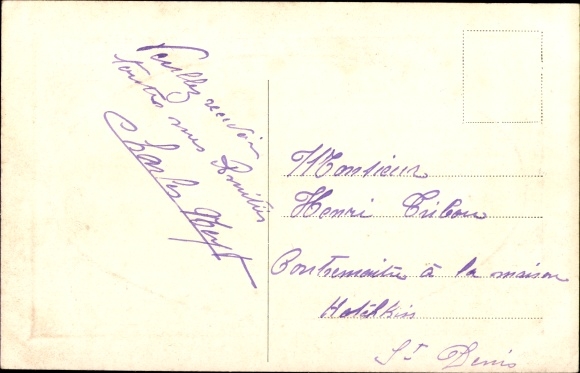 Veuillez recevoir
toutes mes Amitiés
Charles
Monsieur
Henri Tribou
Contremaitre à la maison
Hotchkiss
St Denis